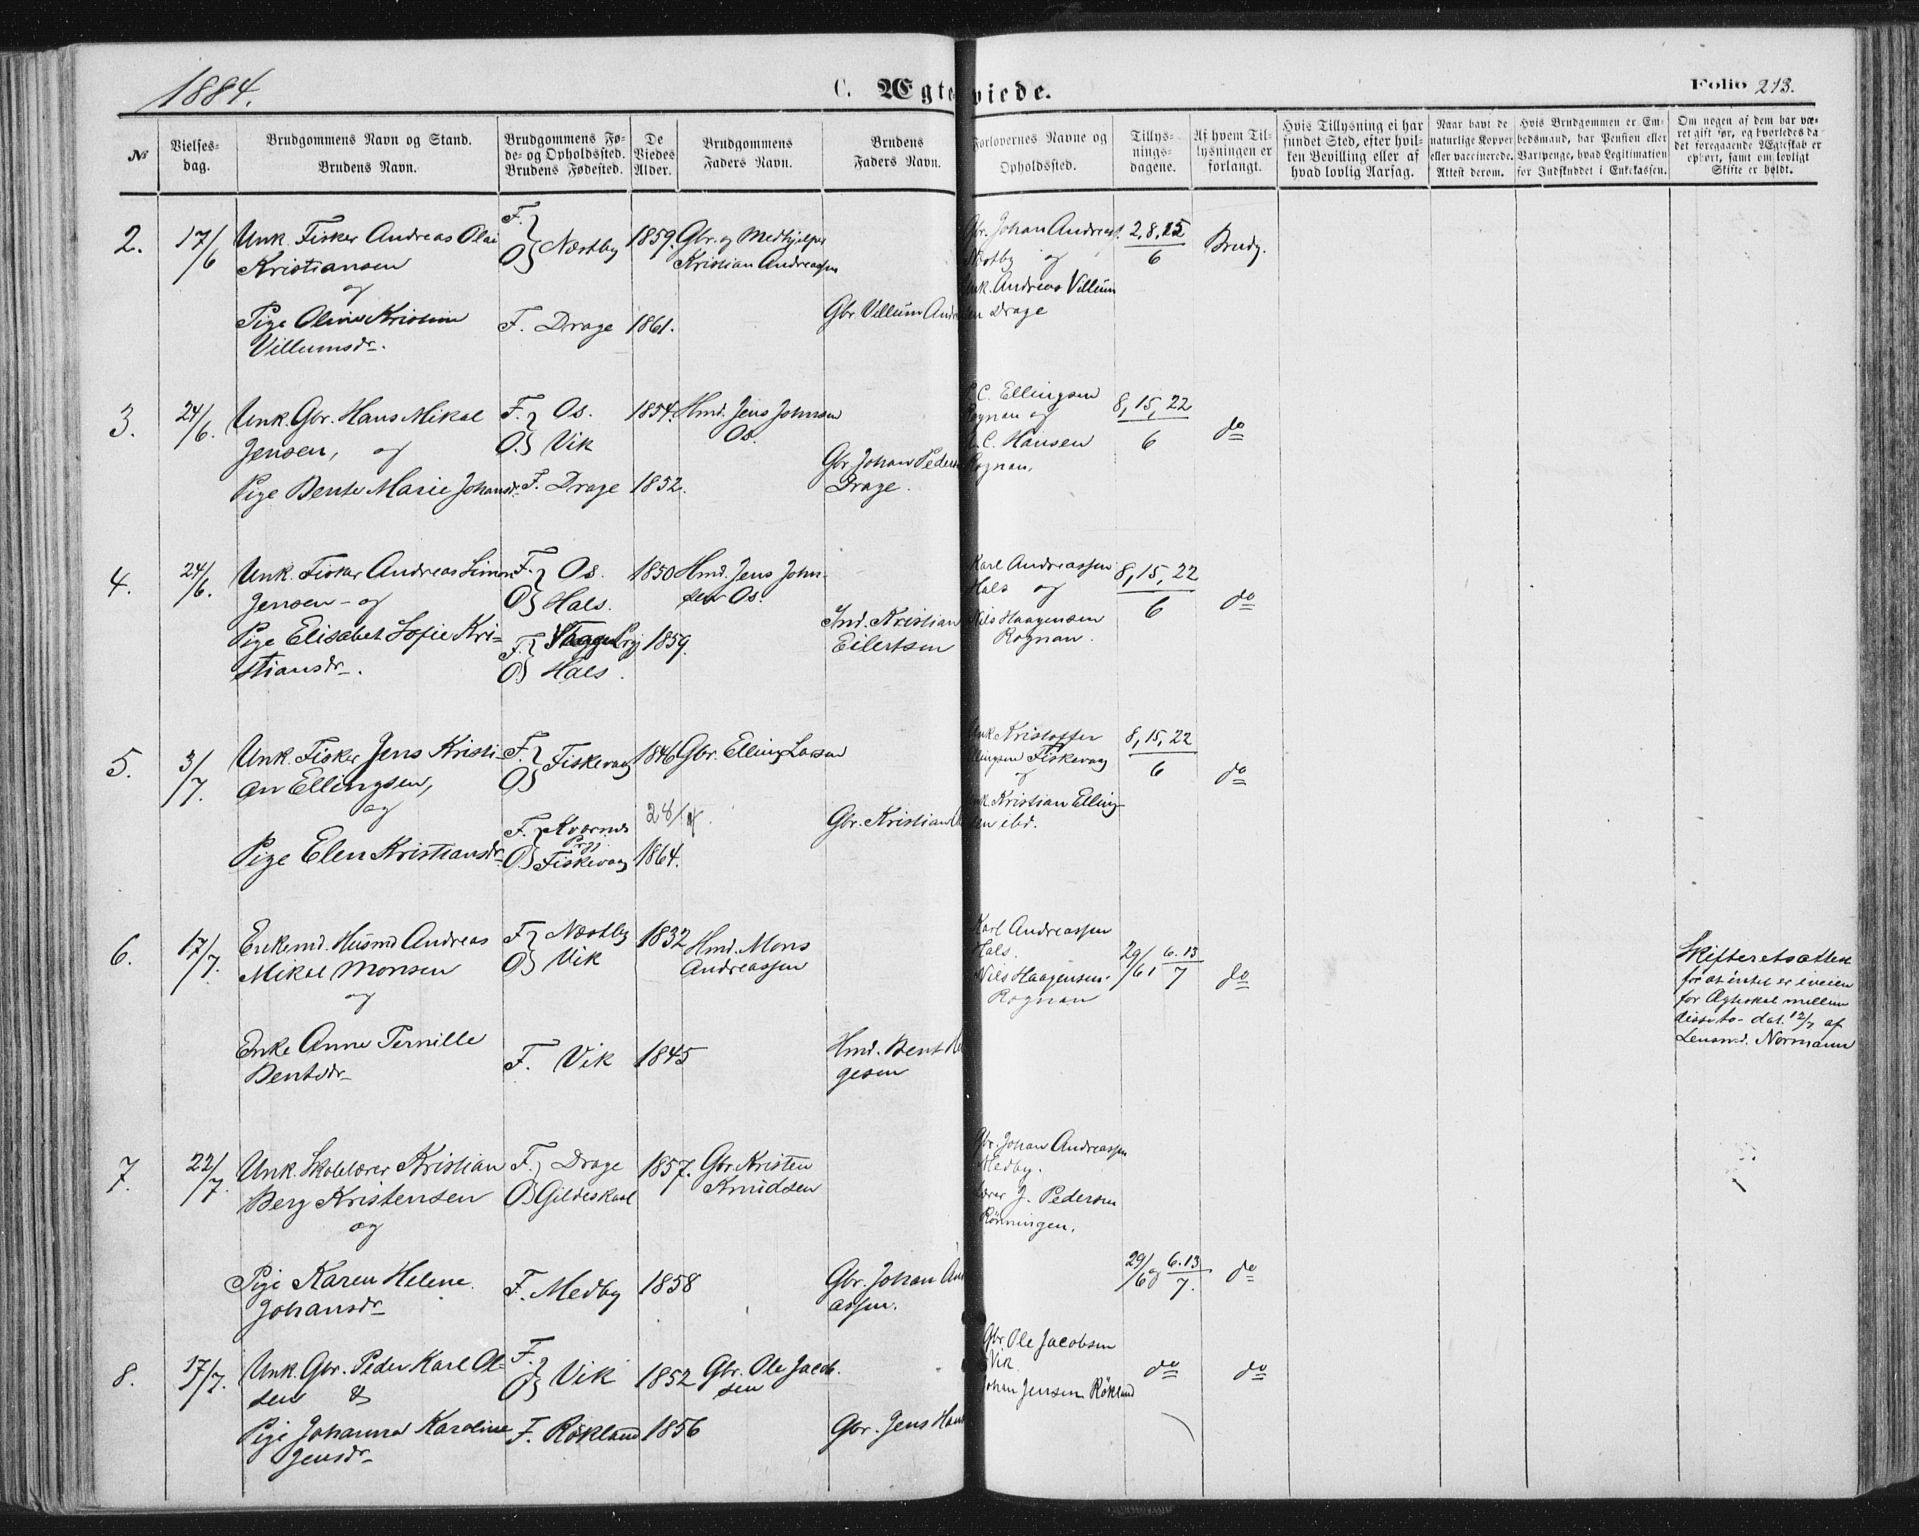 1884.
C. Ægteviede.
Folio 213.
No
Vielses-
dag.
Brudgommens Navn og Stand.
Brudens Navn.
Brudgommens Fø-
de- og Opholdssted.
Brudens Fødested.
De
Viedes
Alder.
Brudgommens
Faders Navn.
Brudens
Faders Navn.
Forlovernes Navne og
Opholdssted.
Tillys-
nings-
dagene.
Af hvem Til-
lysningen er
forlangt.
Hvis Tillysning ei har
fundet Sted, efter hvil-
ken Bevilling eller af
hvad lovlig Aarsag.
Naar havt de
naturlige Kopper
eller vaccinerede.
Attest derom.
Hvis Brudgommen er Em-
bedsmand, har Pension eller
Vartpenge, hvad Legitimation
for Indskuddet i Enkekassen.
Om nogen af dem har væ-
ret gift før, og hvorledes da
det foregaaende Ægteskab er
ophørt, samt om lovligt
Skifte er holdt.
2.
17/6
Unk. Fisker Andreas Olai
Kristiansen
og
Pige Oline Kristine
Villumsdr.
F.
O. Næstby
F. Drage
1859.
1861.
Gbr. og Medhjelper
Kristian Andreassen
Gbr. Villum
Gbr. Johan Andreas.
Næstby og
Unk. Andreas Villum
sen Drage
2, 8, 15
6
Brudg.
3.
24/6.
Unk. Gbr. Hans Mikal
Jensen, og
Pige Bente Marie Johansdr.
F. Os.
O. Vik
F. Drage
1854.
1852.
Hmd. Jens Johnsen
Os.
Gbr. Johan Peders
Drage.
C. Ellingsen
Rognan og
C. Hansen
Rognan.
8, 15, 22
6
do
4.
24/6.
Unk. Fisker Andreas Simon
Jensen - og
Pige Elisabet Sofie Kri-
stiansdr.
F. Os.
O. Hals.
F.
O. Hals.
1850
1859.
Hmd. Jens John-
sen Os.
Ind. Kristian
Eilertsen
Karl Andreassen
Hals og
Nils Haagensen
Rognan.
8, 15, 22
6
do
5.
3/7.
Unk. Fisker Jens Kristi-
an Ellingsen,
og
Pige Elen Kristiansdr.
F.
O. Fiskevaag
F. Kværnes
Prgj
O. Fiskevaag
1846
28/4.
1864.
Gbr. Elling Larsen
Gbr. Kristian
Unk. Kristoffer
Ellingsen Fiskevaag
og
Unk. Kristian Elling-
sen ibd.
8, 15, 22
6
do
6.
17/7.
Enkemd. Husmd Andreas
Mikal Monsen
og
Enke Anne Pernille
Bentsdr.
F. Næstby
O. Vik
F. Vik
1832
1845
Hmd. Mons
Andreassen
Hmd. Bent
gesen
Karl Andreassen
Hals.
Nils Haagensen.
Rognan
29/6 6. 13
7
do
Skifteretsattest
for at intet er iveien
for Ægteskab mellem
disse to - dat. 12/7 af
Lensmd. Normann
7.
22/7.
Unk. Skolelærer Kristian
Berg Kristensen
og
Pige Karen Helene
Johansdr.
F. Drage
O. Gildeskaal
F. Medby
1857.
1858
Gbr. Kristen
Knudsen
Gbr. Johan
assen.
Gbr. Johan Andreassen
Medby.
Lærer J. Pedersen
Rönningen.
29/6 og 6. 13
7.
do
8.
17/7.
Unk. Gbr. Peder Karl Ol-
sen &
Pige Johanna Karoline
Jensdr.
F.
O. Vik
F. Rökland
1852
1856
Gbr. Ole Jacob.
sen
Gbr. Jens Hans
Gbr. Ole Jacobsen
Vik.
Johan Jensen Rökland
do
do